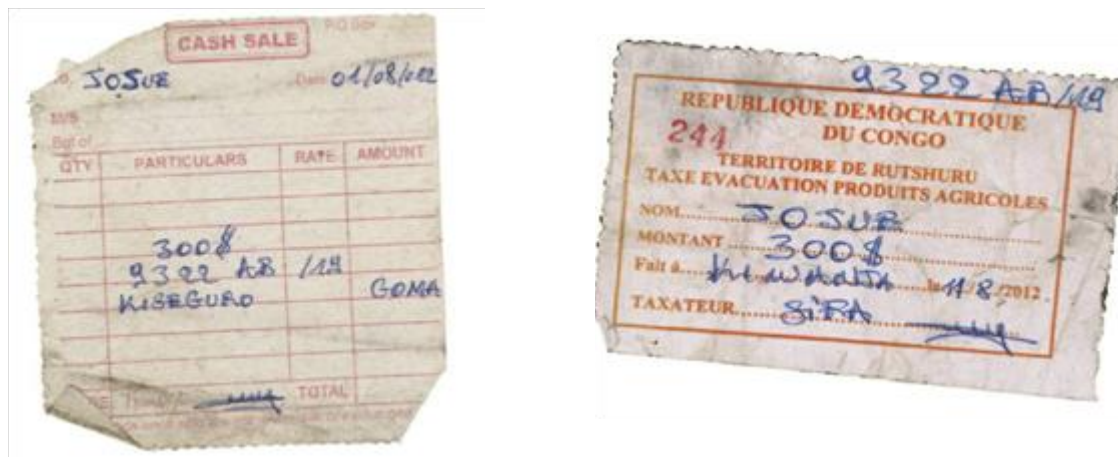 CASH SALE
P.O Box
JOSUE Date 01/08/012
M/S
Bot of
QTY PARTICULARS RATE AMOUNT
300$
9322 AB /19
KISEGURO GOMA
TOTAL
9322 AB/19
REPUBLIQUE DEMOCRATIQUE
DU CONGO
244
TERRITOIRE DE RUTSHURU
TAXE EVACUATION PRODUITS AGRICOLES
NOM JOSUE
MONTANT 300$
Fait à KIWANJA le 11/8/2012
TAXATEUR SIRA